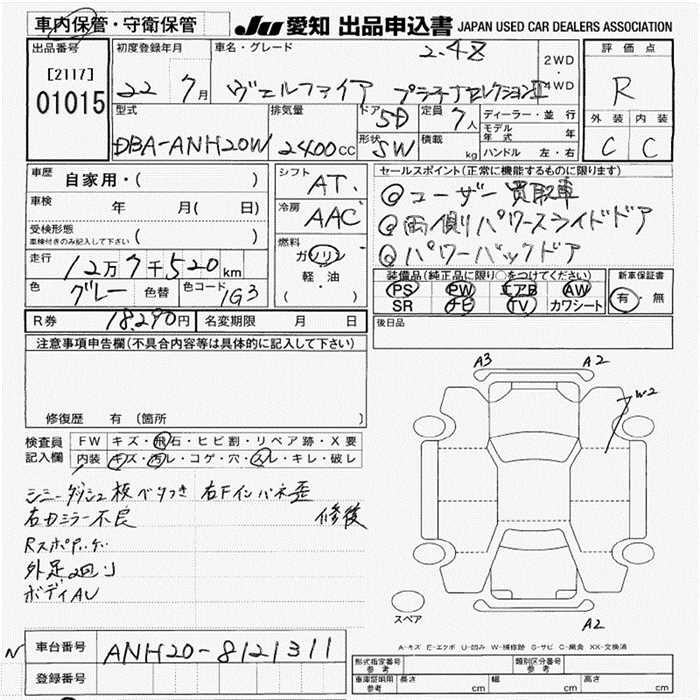 車内保管・守衛保管
JU 愛知 出品申込書 JAPAN USED CAR DEALERS ASSOCIATION
出品番号
[2117]
01015
初度登録年月
22 7月
車名・グレード
2.4Z
ヴェルファイア プラチナセレクションII
2WD
4WD
評価点
R
外装 内装
C C
型式
DBA-ANH20W
排気量
2400cc
ドア
5D
形状
SW
定員
7人
積載
kg
ディーラー・並行
モデル年式 年
ハンドル 左・右
車歴
自家用・( )
車検
年 月( 日)
受検形態
車検付きのみ記入して下さい ( )
走行
12万7千520km
色
グレー
色替
色コード
1G3
シフト
AT.
冷房
AAC
燃料
ガソリン
軽・油
( )
セールスポイント(正常に機能するものに限ります)
◎ユーザー買取車
◎両側パワースライドドア
◎パワーバックドア
装備品(純正品に限り○をつけてください)
PS PW エアB AW
SR ナビ TV カワシート
新車保証書
有・無
R券 18,290円
名変期限 月 日
後日品
注意事項申告欄(不具合内容等は具体的に記入して下さい)
修復歴 有 〔箇所 〕
検査員
記入欄
FW キズ・飛石・ヒビ割・リペア跡・X要
内装 キズ・汚レ・コゲ・穴・スレ・キレ・破レ
シミーダッシュ板ベタつき 右Fインパネ歪
右Dミラー不良 修後
外足廻り
A3
A2
W2
スペア
A2
A-キズ E-エクボ U-凹み W-補修跡 S-サビ C-腐食 XX-交換済
車台番号 ANH20-8121311
登録番号
形式指定番号
参考
類別区分番号
参考
車庫証明用
参考
長さ cm
幅 cm
高さ cm